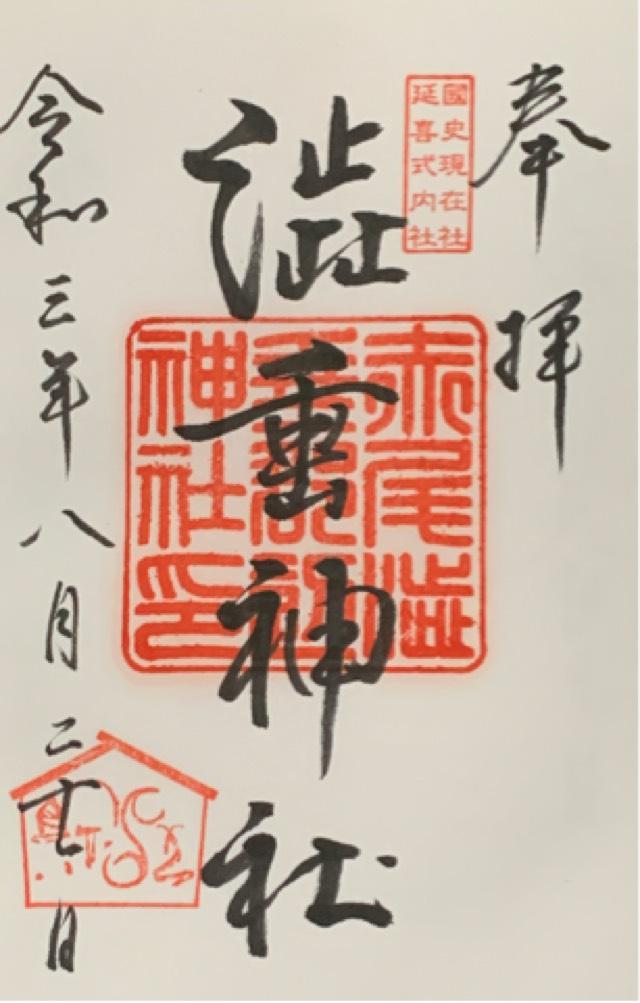 奉拝
國史現在社
延喜式内社
澁垂神社
赤尾澁
神社印
令和三年八月二十七日